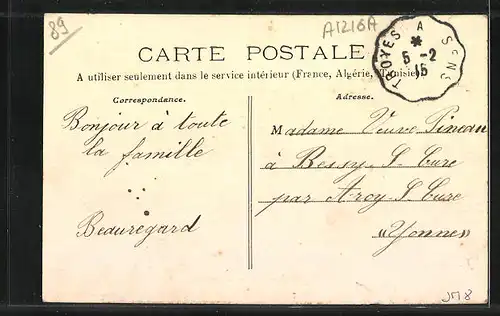 89
A1216A
CARTE POSTALE
A utiliser seulement dans le service intérieur (France, Algérie, Tunisie)
TROYES A SENS
5 -2
15
Correspondance.
Adresse.
Bonjour à toute
la famille
Beauregard
Madame Veuve Pineau
à Bessy S. Cure
par Arcy S. Cure
"Yonne"
JM8